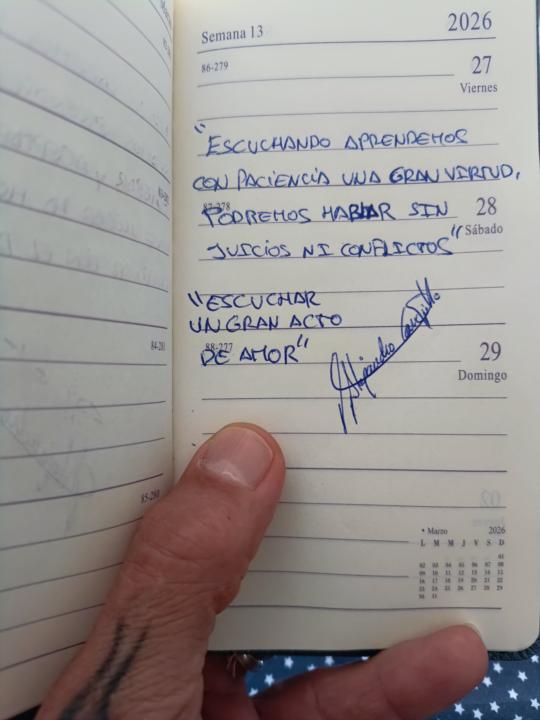 Semana 13 2026
86-279 27
Viernes
"ESCUCHANDO APRENDEMOS
CON PACIENCIA UNA GRAN VIRTUD,
PODREMOS HABLAR SIN 28
JUICIOS NI CONFLICTOS" Sábado
"ESCUCHAR
UN GRAN ACTO
88-277
DE AMOR" 29
Domingo
84-281
85-280
• Marzo 2026
L M M J V S D
01
02 03 04 05 06 07 08
09 10 11 12 13 14 15
16 17 18 19 20 21 22
23 24 25 26 27 28 29
30 31